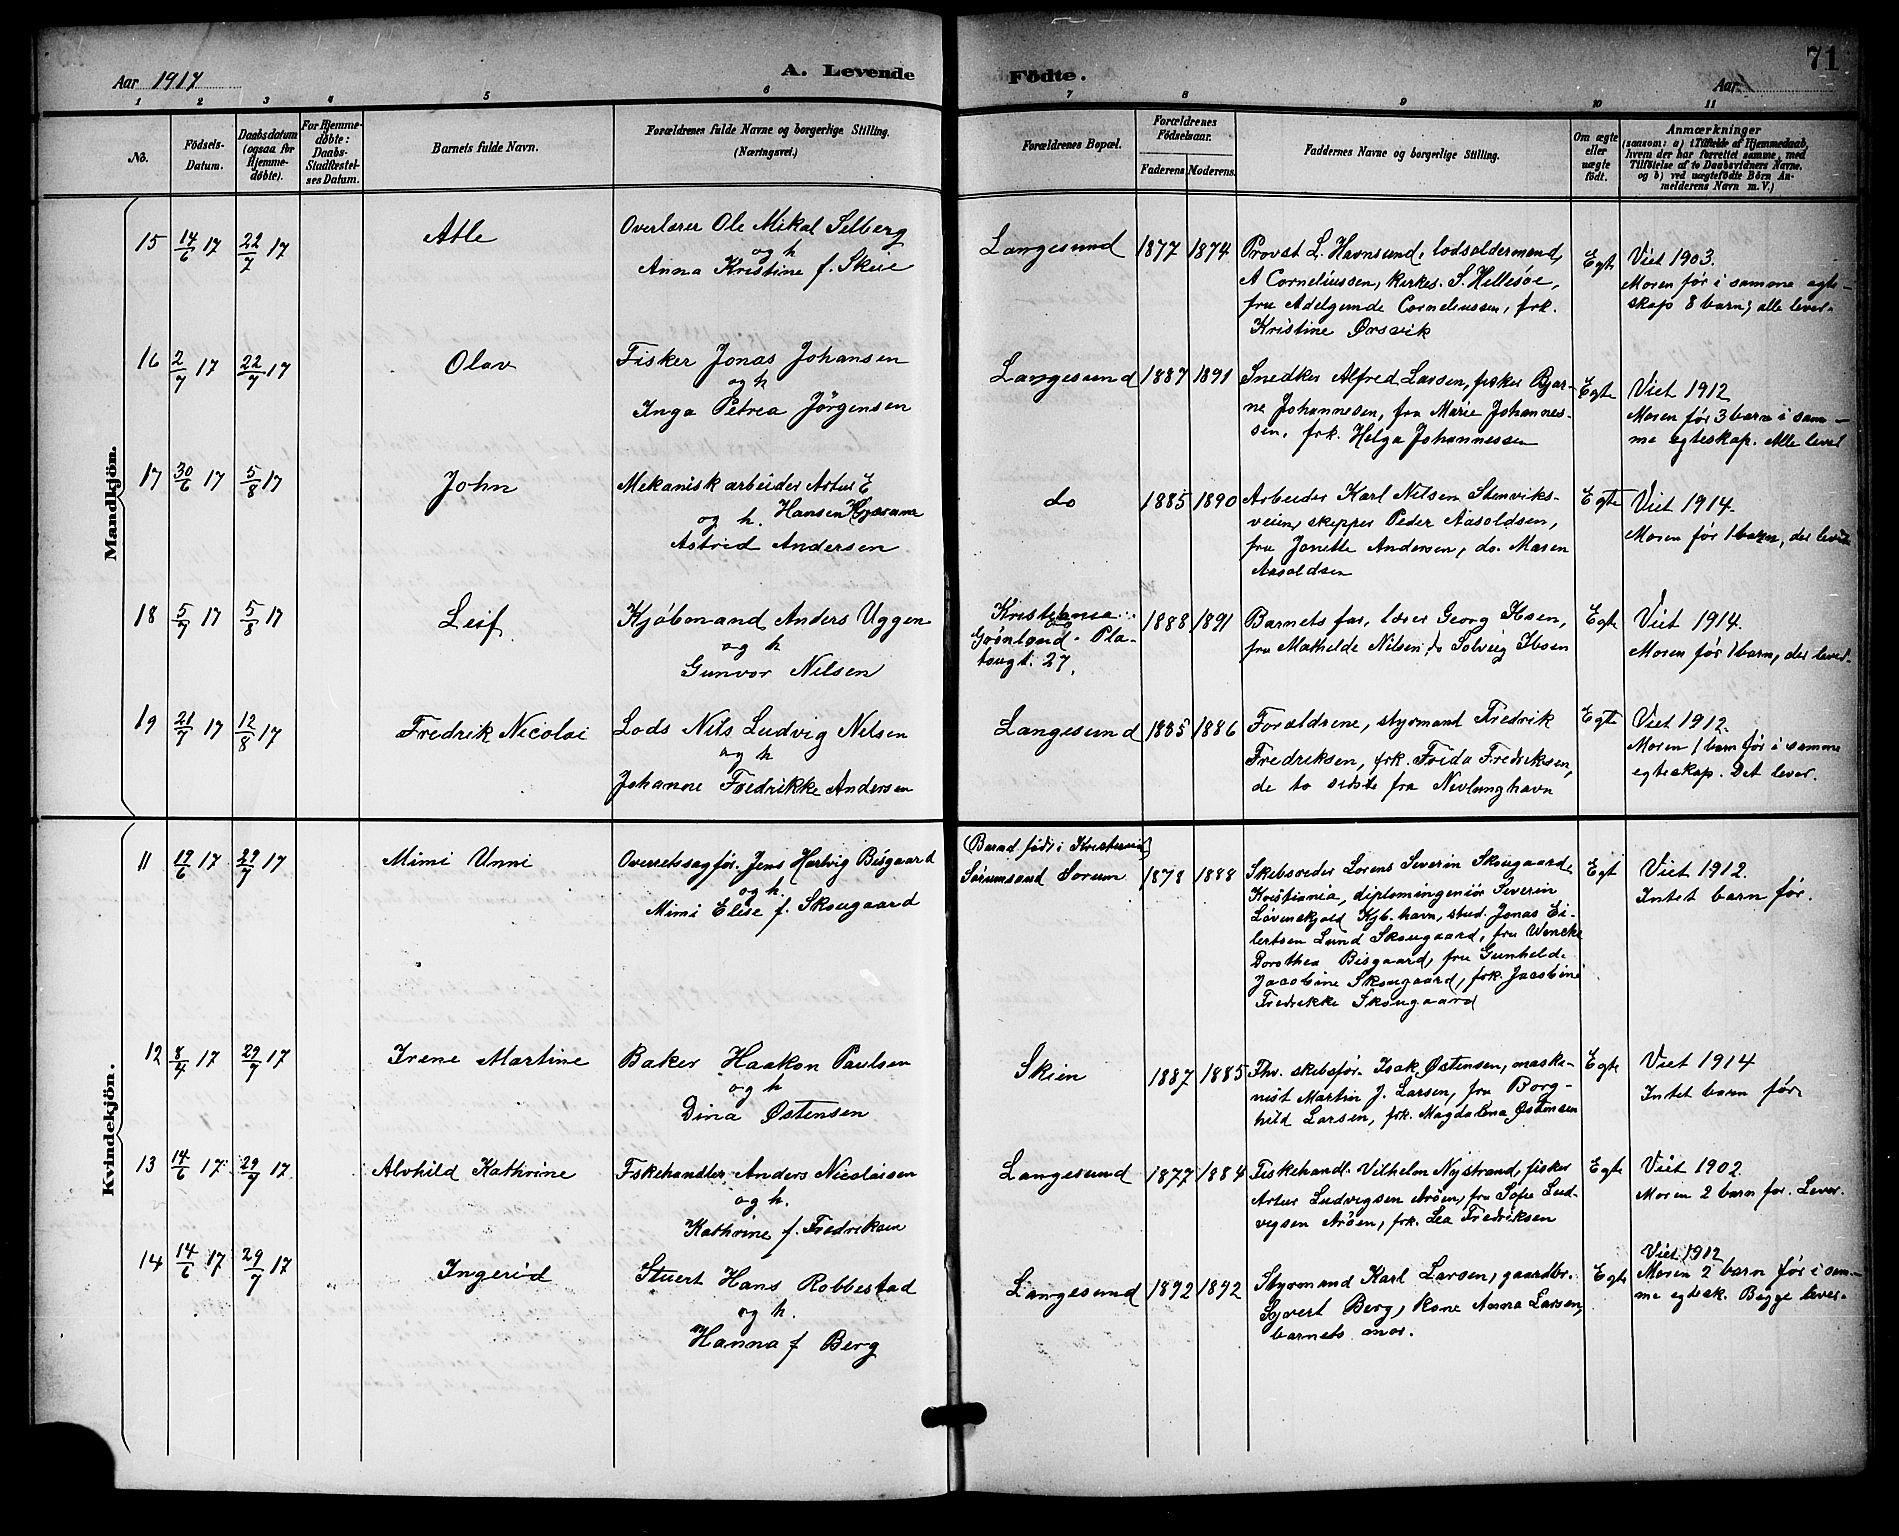 71
Aar 1917
A. Levende
Födte.
Aar
1 2 3 4 5 6 7 8 9 10 11
No.
Födsels-
Datum.
Daabsdatum
(ogsaa for
Hjemme-
döbte).
For Hjemme-
döbte:
Daabs-
Stadfæstel-
ses Datum.
Barnets fulde Navn.
Forældrenes fulde Navne og borgerlige Stilling.
(Næringsvei.)
Forældrenes Bopæl.
Forældrenes
Födselsaar.
Faderens. Moderens.
Faddernes Navne og borgerlige Stilling.
Om ægte
eller
uægte
födt.
Anmærkninger
(saasom: a) i Tilfælde af Hjemmedaab,
hvem der har forrettet samme, med
Tilföielse af to Daabsvidners Navne.
og b) ved uægtefödte Börn An-
melderens Navn m. V.)
Mandkjön.
15 14/6 17 22/7 17 Atle
Overlærer Ole Mikal Selberg
og h
Anna Kristine f. Skeie
Langesund 1877 1874
Provst L. Havnsund, lodsoldermand,
A Corneliussen, kirkes. S. Hellesøe,
fru Adelgunde Corneliussen, frk.
Kristine Ørsvik
Egte
Viet 1903.
Moren før i samme egte-
skap 8 barn, alle lever.
16 2/7 17 22/7 17 Olav
Fisker Jonas Johansen
og h
Inga Petrea Jörgensen
Langesund 1887 1891
Snedker Alfred Larsen, fisker Bjar-
ne Johannesen, fru Marie Johannes-
sen, frk. Helga Johannessen
Egte
Viet 1912
Moren før 3 barn i sam-
me egteskap. Alle level
17 30/6 17 5/8 17 John
Mekanisk arbeider Artur E
Hansen
og h.
Astrid Andersen
do 1885 1890
Arbeider Karl Nilsen Stenviks-
veien, skipper Peder Aasoldsen,
fru Jonette Andersen, do. Maren
Aasoldsen
Egte
Viet 1914.
Moren før 1 barn, der lever
18 5/7 17 5/8 17 Leif.
Kjøbmand Anders Uggen
og h
Gunvor Nilsen
Kristiania
Grønland - Pla-
tougt. 27.
1888 1891
Barnets far, lærer Georg Ibsen,
fru Mathilde Nilsen, do Solveig Ibsen
Egte
Viet 1914.
Moren før 1 barn, der lever.
19 21/7 17 12/8 17 Fredrik Nicolai
Lods Nils Ludvig Nilsen
og h
Johanne Fredrikke Andersen
Langesund 1885 1886
Forældrene, styrmand Fredrik
Fredriksen, frk. Frida Fredriksen,
de to sidste fra Nevlunghavn
Egte
Viet 1912.
Moren 1 barn før i samme
egteskap. Det lever.
Kvindekjön.
11 19/6 17 29/7 17 Mimi Unni
Overretssagfør. Jens Hartvig Bisgaard
og h.
Mimi Elise f. Skougaard
(Barnet født i Kristiania)
Sørumsand Sørum 1878 1888
Skibsreder Lorens Severin Skougaard,
Kristiania, diplomingeniör Severin
Løvenskjold Kjb.havn, stud. Jonas Ei-
lertsen Lund Skougaard, fru Wencke
Dorothea Bisgaard, fru Gunhild
Jacobine Skougaard, frk. Jacobine
Fredrikke Skougaard
Egte
Viet 1912.
Intet barn før.
12 8/4 17 29/7 17 Irene Martine
Baker Haakon Paulsen
og h
Dina Østensen
Skien 1887 1885
Fhv. skibsfør. Isak Østensen, maski-
nist Martin J. Larsen, fru Borg-
hild Larsen, frk. Magdalena Østensen
Egte
Viet 1914
Intet barn før
13 14/6 17 29/7 17 Alvhild Kathrine
Fiskehandler Anders Nicolaisen
og h.
Kathrine f. Fredriksen
Langesund 1877 1884
Fiskehandl. Vilhelm Nystrand, fisker
Artur Ludvigsen Arøen, fru Sofie Lud-
vigsen Arøen, frk. Lea Fredriksen
Egte
Viet 1902.
Moren 2 barn før. Lever.
14 14/6 17 29/7 17 Ingerid
Stuert Hans Robbestad
og h.
Hanna f Berg
Langesund 1892 1892
Styrmand Karl Larsen, gaardbr.
Syvert Berg, kone Anna Larsen,
barnets mor.
Egte
Viet 1912
Moren 2 barn før i sam-
me egtesk. Begge lever.